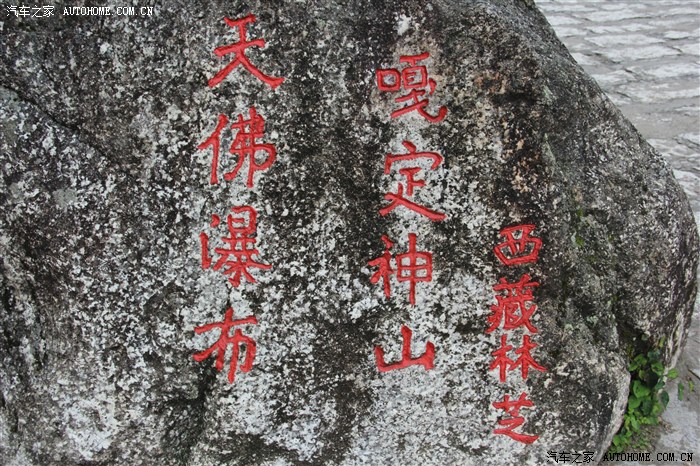 汽车之家 AUTOHOME.COM.CN
西藏林芝
嘎定神山
天佛瀑布
汽车之家 AUTOHOME.COM.CN